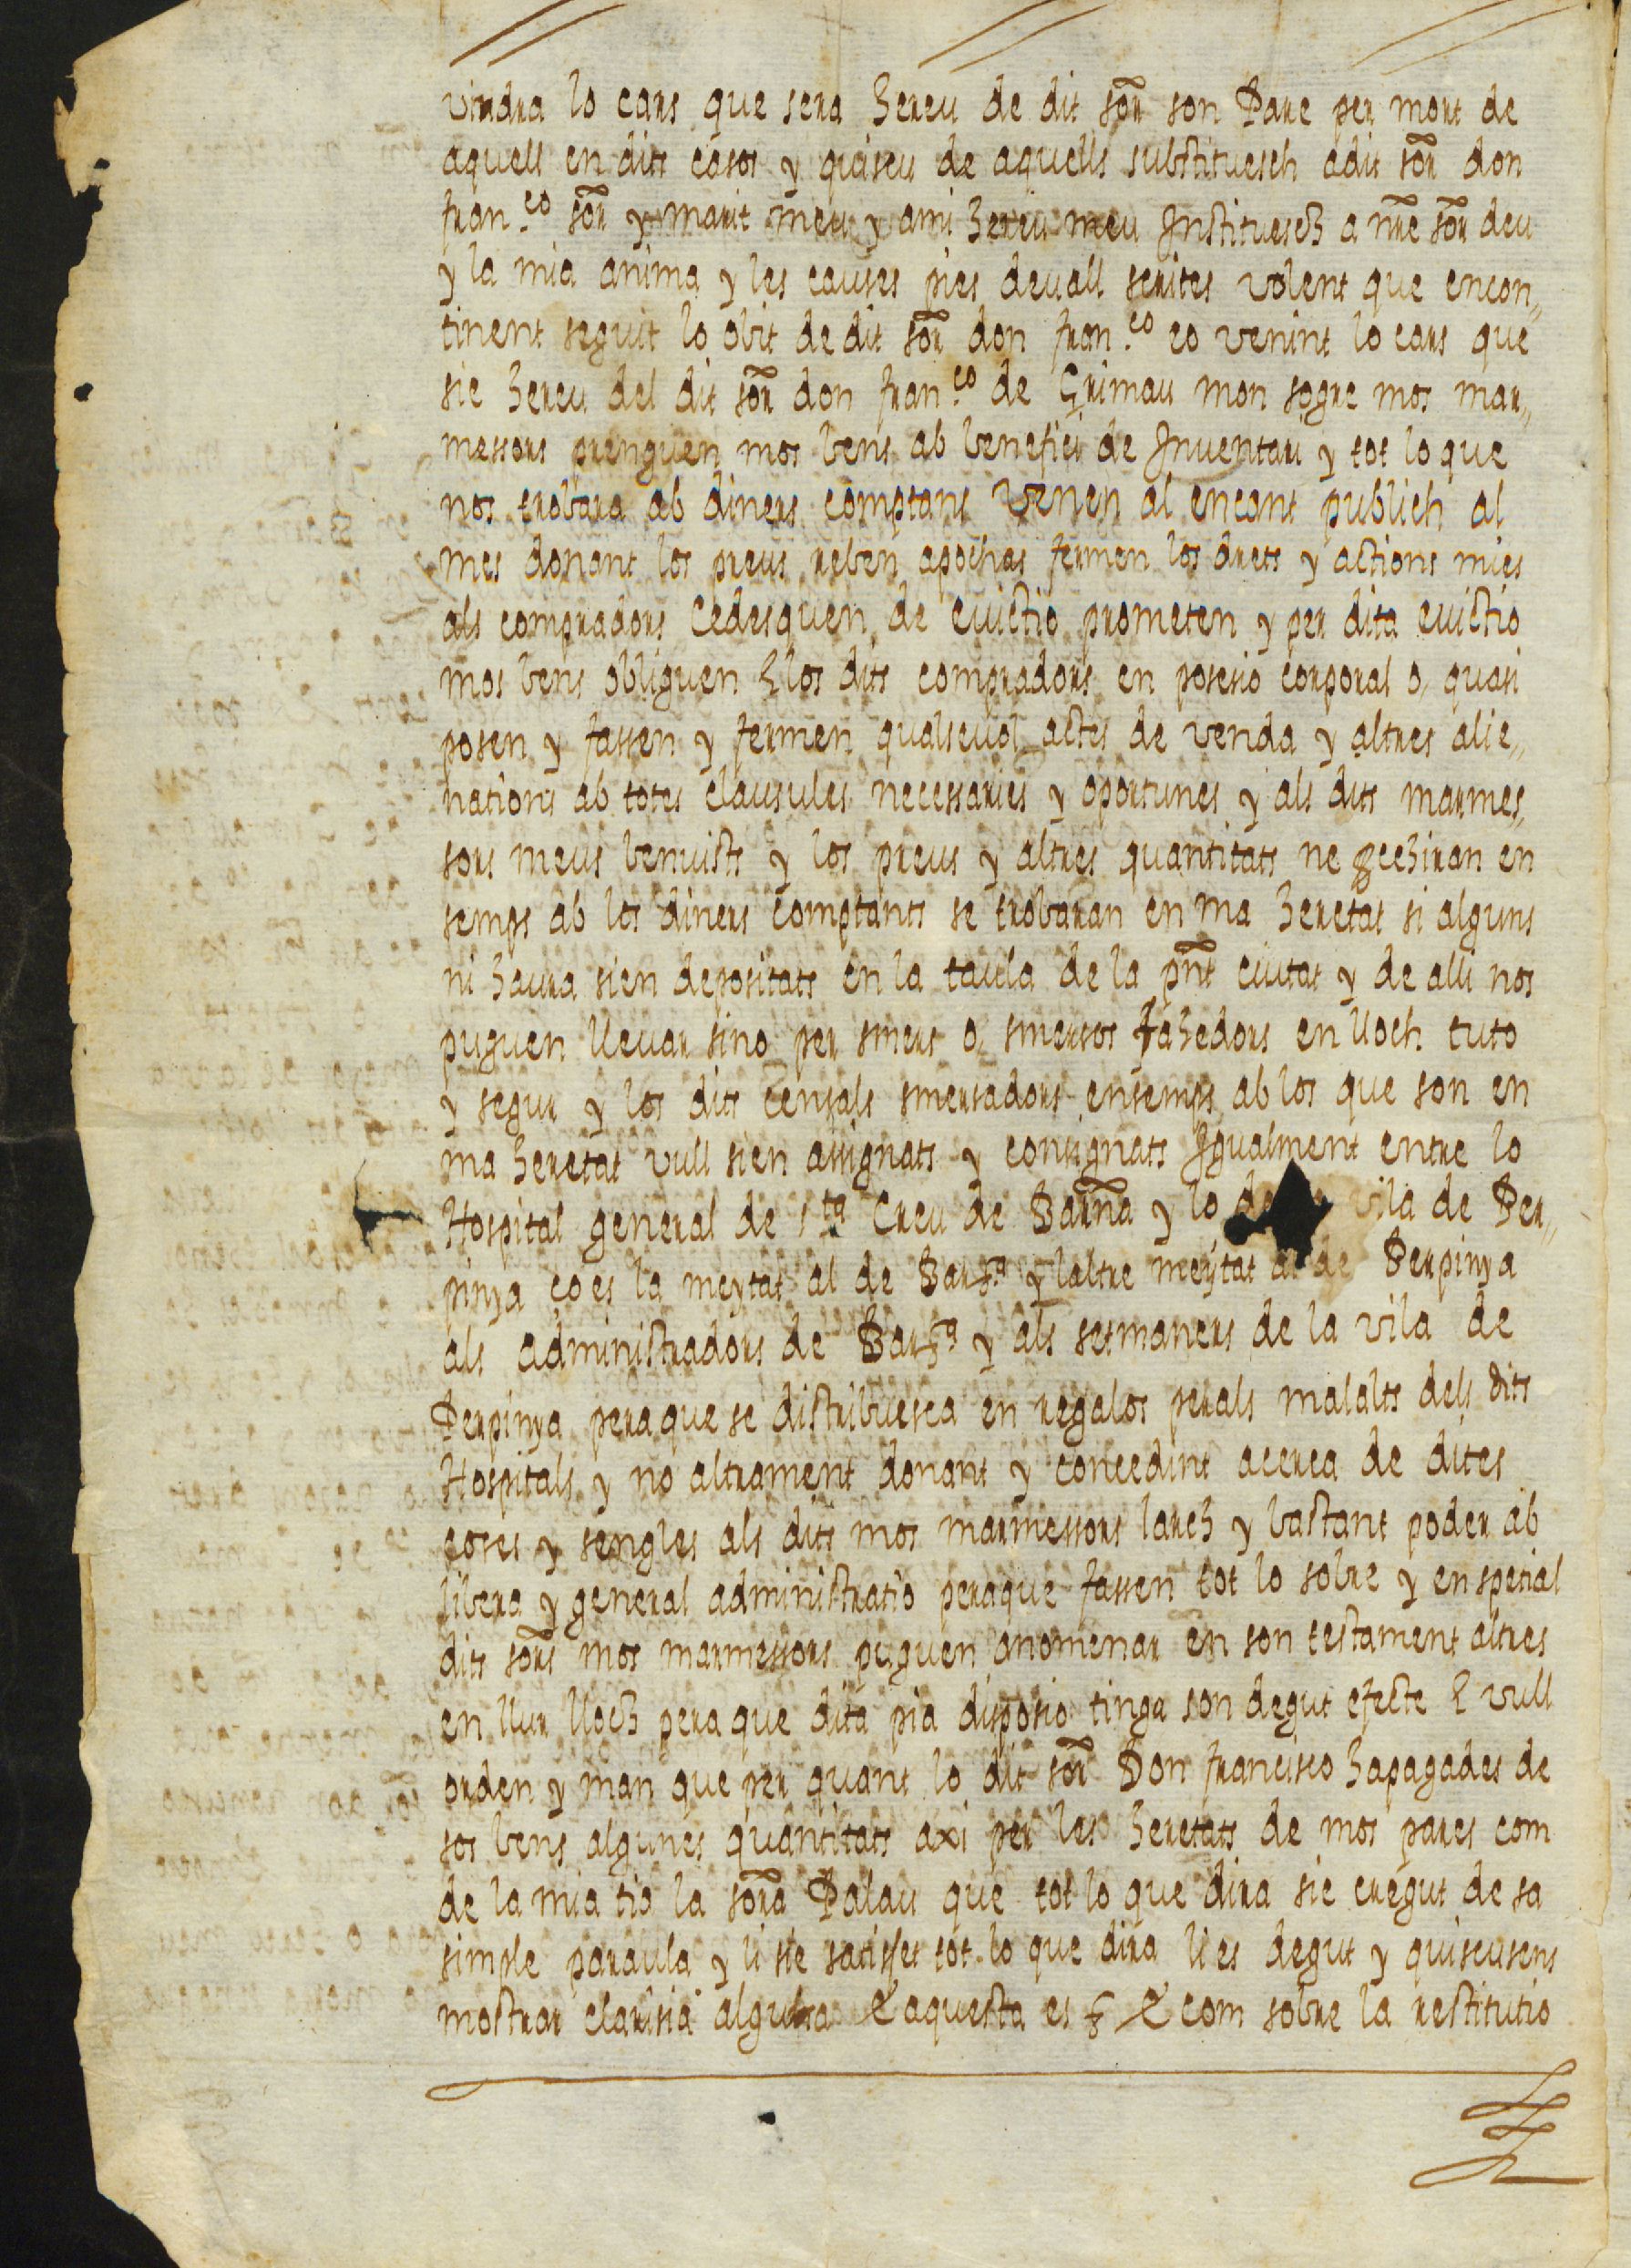 vindra lo cars que sera hereu de dit sor̃ son Pare per mort de
aquell en dits casos y quiscu de aquells substituesch a dit sor̃ don
fran.co sor̃ y marit meu y ami hereu meu Instituesch a nr̃e sor̃ deu
y la mia anima y les causes pies devall scrites volent que encon,,
tinent seguit lo obit de dit sor̃ don fran.co co venint lo cars que
sie hereu del dit sor̃ don fran.co de Grimau mon sogre mos mar,,
messors prenguen mos bens ab benefici de Inventari y tot lo que
nos trobara ab diners comptans venen al encant publich al
mes donant los preus reben apochas fermen los drets y actions mies
als compradors Cedesquen de evictio prometen y per dita evictio
mos bens obliguen E los dits compradors en posesio corporal o, quasi
posen y fassen y fermen qualsevol actes de venda y altres alie,,
nations ab totes clausules necessaries y oportunes y als dits marmes,,
sors meus benvists y los preus y altres quantitats ne exehiran en
semps ab los diners comptants se trobaran en ma heretat si alguns
ni haura sien depositats en la taula de la pñt ciutat y de alli nos
puguen llevar sino per smers o, smersos fahedors en lloch tuto
y segur y los dits Censals smersadors ensemps ab los que son en
ma heretat vull sien assignats y consignats Igualment entre lo
Hospital general de sta Creu de Barña y lo de vila de Per,,
pinya ço es la meytat al de Barna y laltre meytat al de Perpinya
als administradors de Barna y als setmaners de la vila de
Perpinya peraque se distribuesca en regalos perals malalts dels dits
Hospitals y no altrament donant y concedint acerca de dites
coses y sengles als dits mos marmessors larch y bastant poder ab
libera y general administratio peraque fassen tot lo sobre y en spetial
dits sor̃s mos marmessors puguen anomenar en son testament altres
en llur lloch pera que dita pia disposio tinga son degut efecte E vull
orden y man que per quant lo dit sor̃ Don francisco ha pagades de
sos bens algunes quantitats axi per les heretats de mos pares com
de la mia tia la sor̃a Palau que tot lo que dira sie cregut de sa
simple paraula y li sie satisfet tot lo que dira li es degut y quiscu sens
mostrar clarisia alguna E aquesta es E com sobre la restitutio